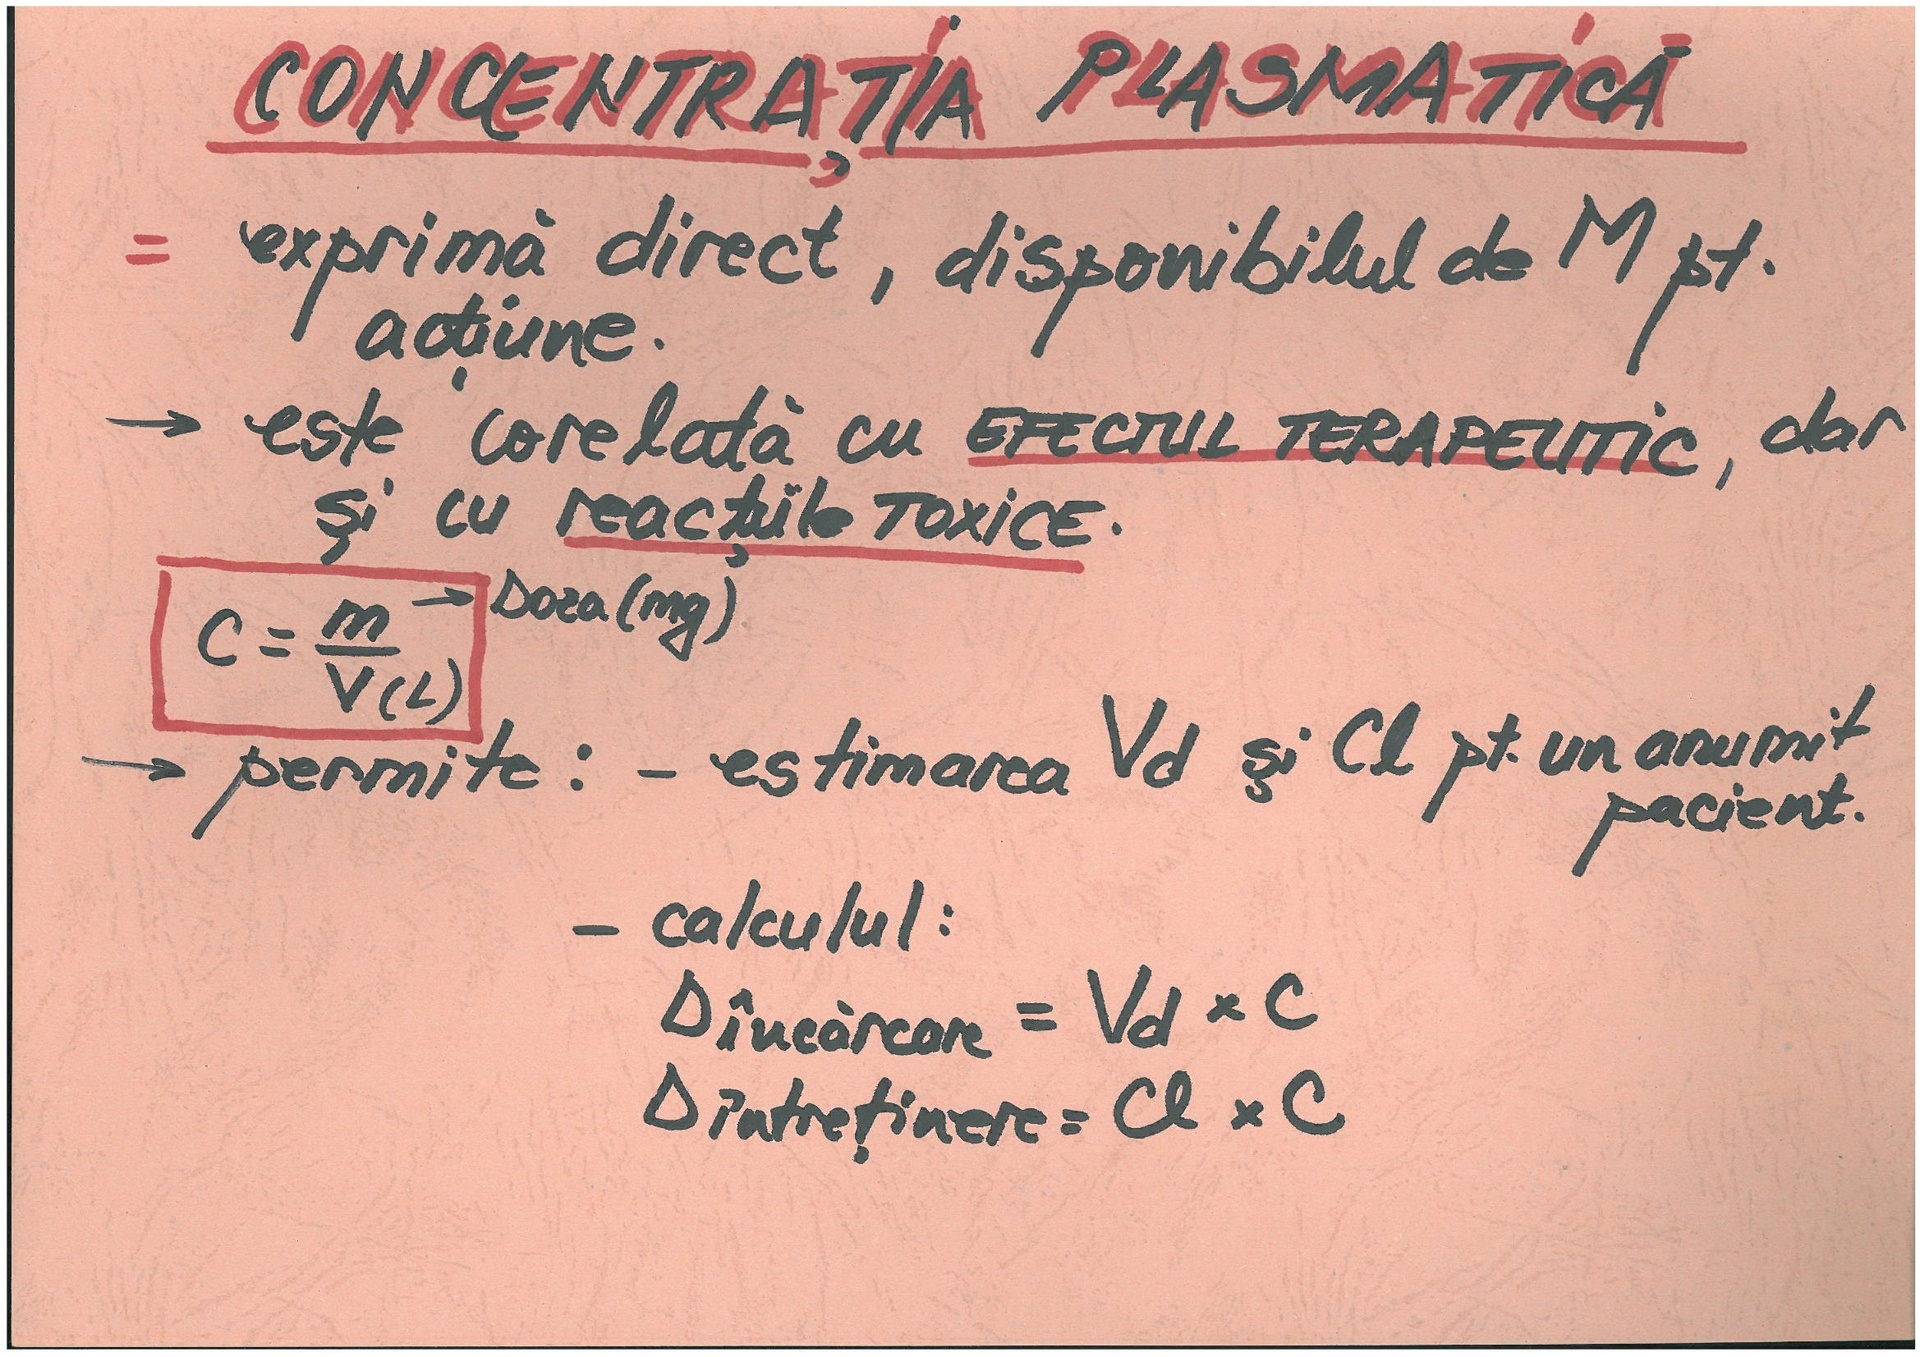 CONCENTRAȚIA PLASMATICĂ
= exprimă direct, disponibilul de M pt.
acțiune.
→ este corelată cu EFECTUL TERAPEUTIC, dar
și cu reacțiile TOXICE.
C = m/V(L) → Doza (mg)
→ permite: - estimarea Vd și Cl pt. un anumit
pacient.
- calculul:
D încărcare = Vd × C
D întreținere = Cl × C